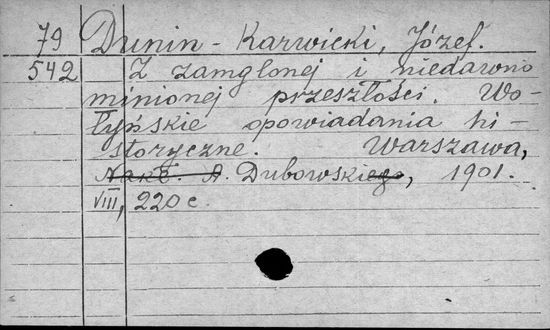 79 Dunin-Karwicki, Józef.
542 Z zamglonej i niedawno
minionej przeszłości. Wo-
łyńskie opowiadania hi-
storyczne. Warszawa,
Nakł. A. Dubowskiego, 1901.
VIII, 220 c.